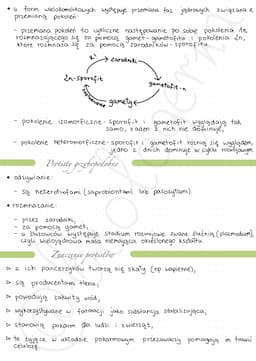 • u form wielokomórkowych występuje przemiana faz jądrowych związana z
przemianą pokoleń
- przemiana pokoleń to cykliczne następowanie po sobie pokolenia 1n,
rozmnażającego się za pomocą gamet - gametofitu i pokolenia 2n,
które rozmnaża się za pomocą zarodników - sporofitu
R!
zarodniki
2n-sporofit
gametofit-n
gamety
- pokolenie izomorficzne - sporofit i gametofit wyglądają tak
samo, żaden z nich nie dominuje,
- pokolenie heteromorficzne - sporofit i gametofit różnią się wyglądem,
jedno z nich dominuje w cyklu rozwojowym
Protisty grzybopodobne
• odżywianie:
- są heterotrofami (saprobiontami lub pasożytami)
• rozmnażanie:
- przez zarodniki,
- za pomocą gamet,
- u śluzowców występuje stadium rozwojowe zwane śluźnią (plasmodium),
czyli wielojądrowa masa niemająca określonego kształtu
Znaczenie protistów
▷ z ich pancerzyków tworzą się skały (np. wapienie),
▷ są producentami tlenu,
▷ powodują zakwity wód,
▷ wykorzystywane w farmacji jako substancja stabilizująca,
▷ stanowią pokarm dla ludzi i zwierząt,
▷ te żyjące w układzie pokarmowym przeżuwaczy pomagają im trawić
celulozę.